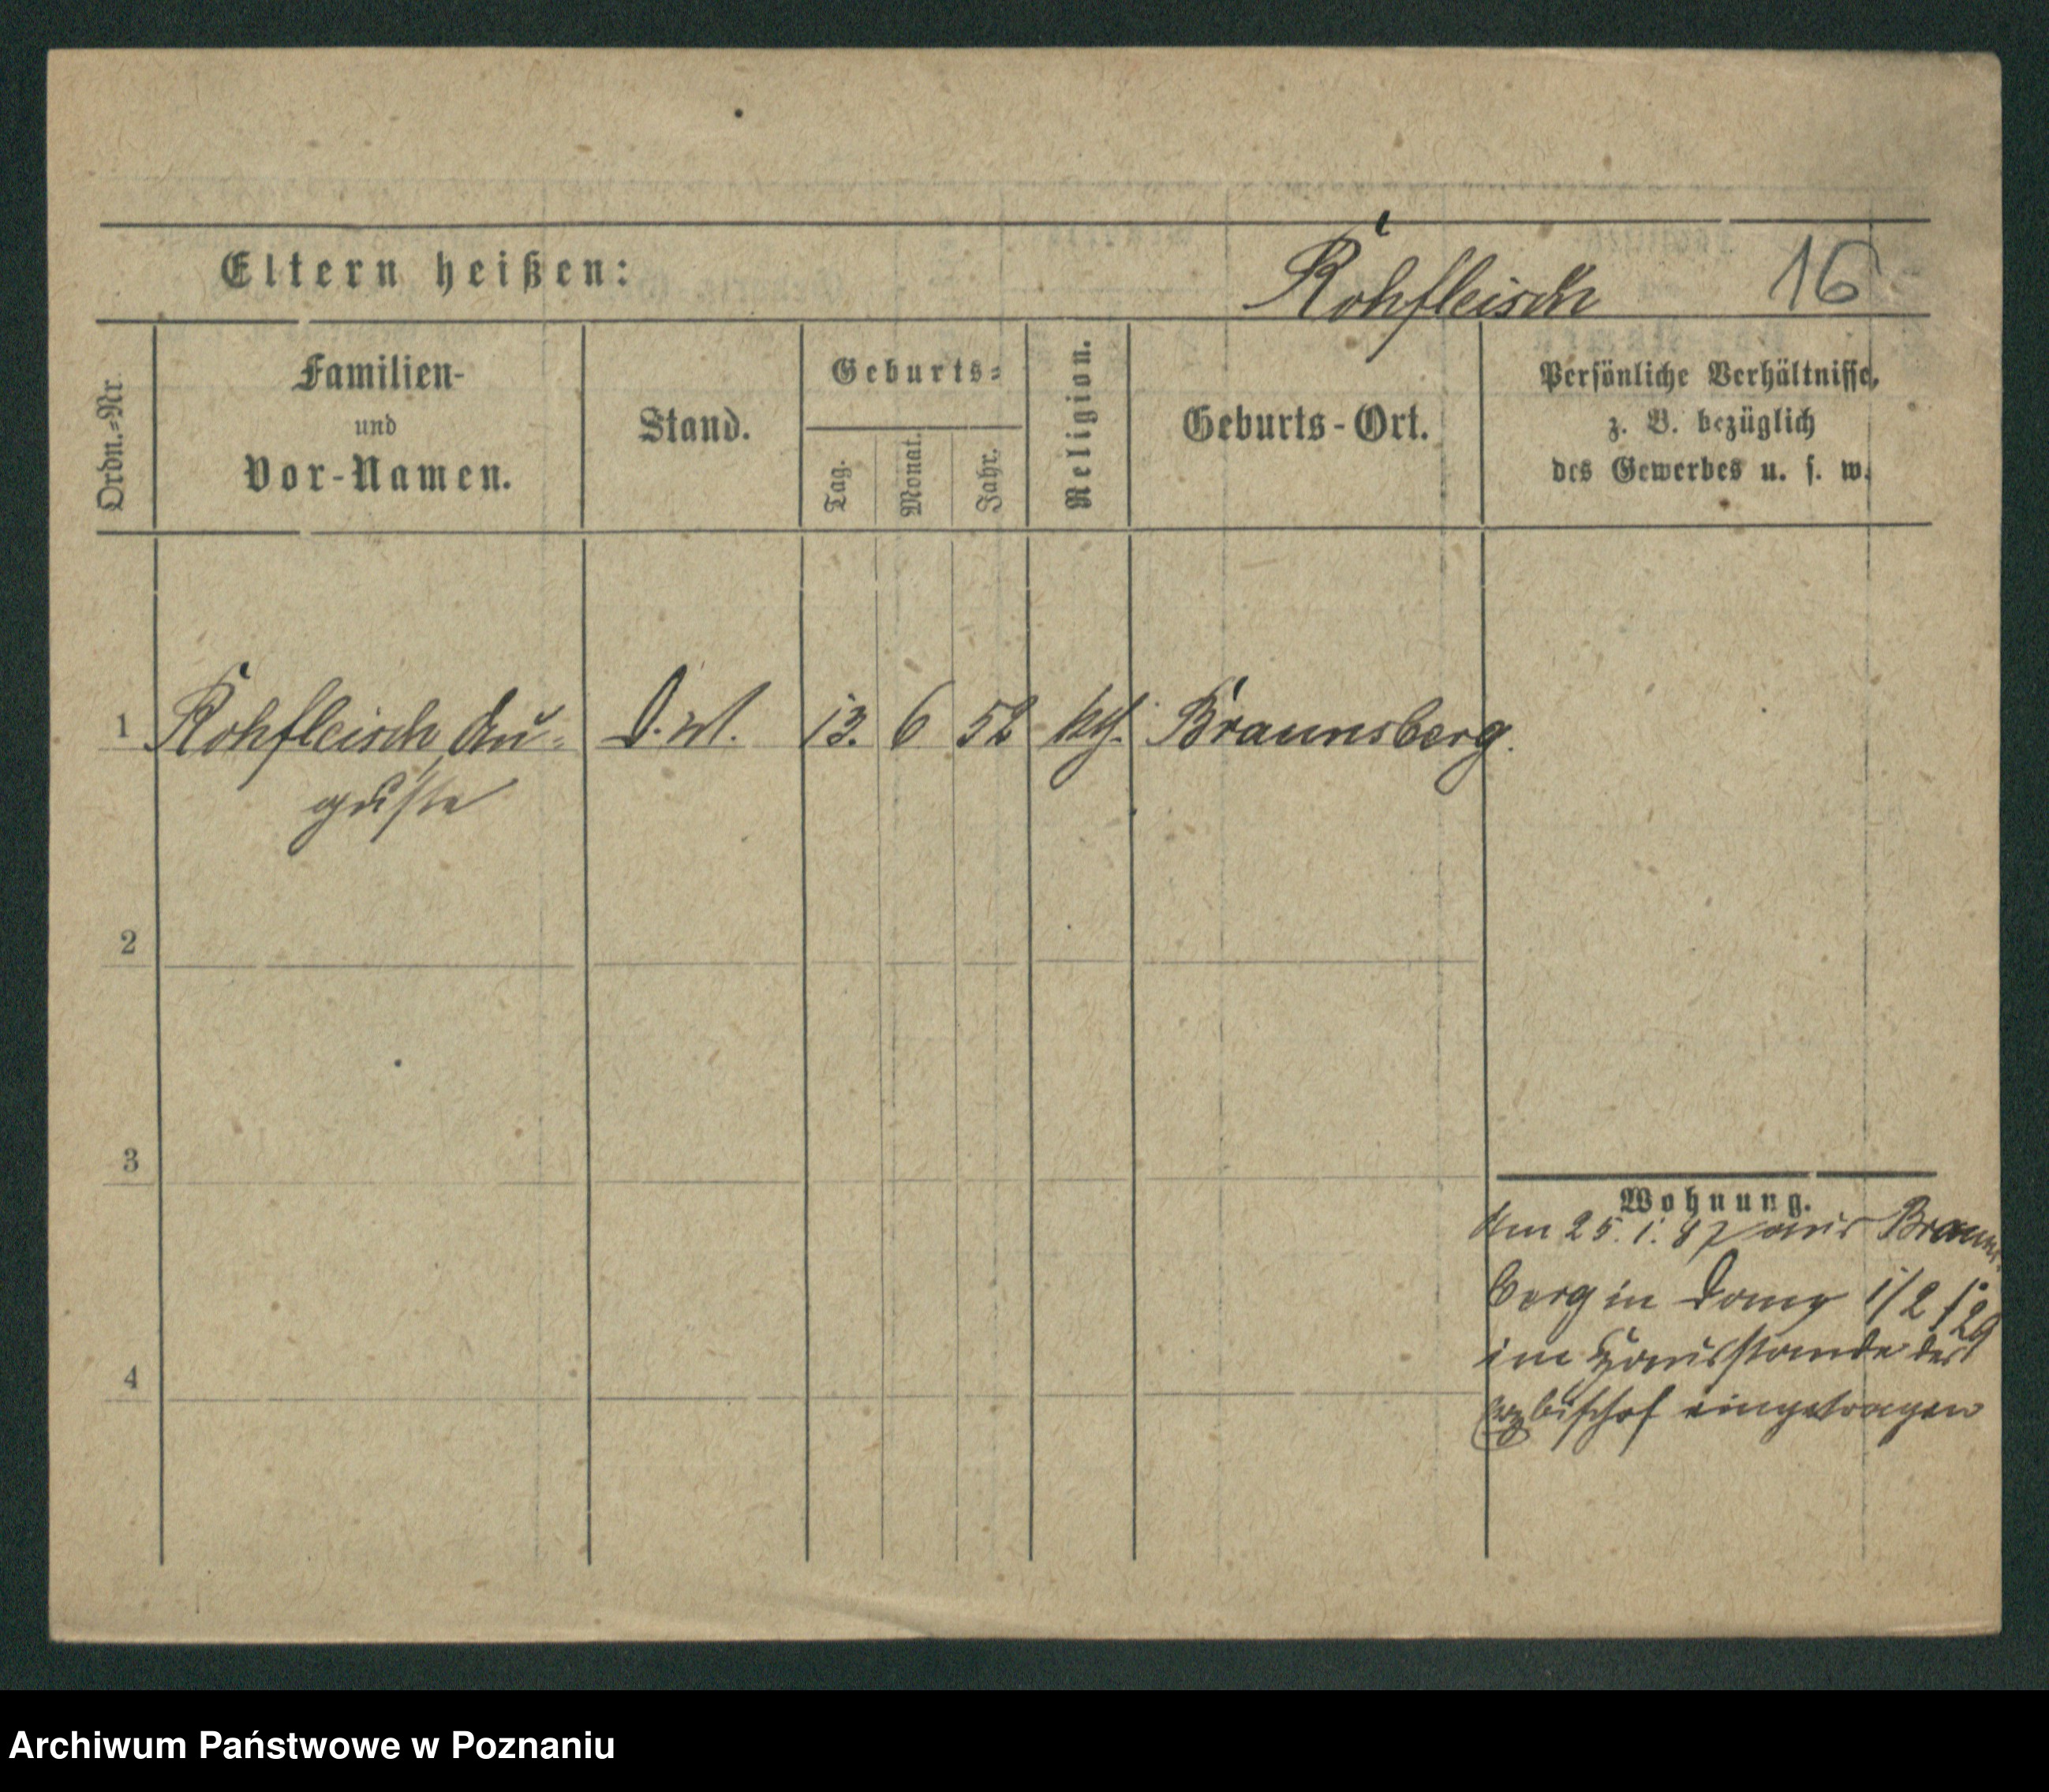 Eltern heißen:
Rohfleisch
16
Ordn.-Nr.
Familien-
und
Vor-Namen.
Stand.
Geburts-
Tag.
Monat.
Jahr.
Religion.
Geburts-Ort.
Persönliche Verhältnisse,
z. B. bezüglich
des Gewerbes u. s. w.
1 Rohfleisch, Au- 13. 6 52 kth. Braunsberg.
guste
2
3
4
Wohnung.
Am 25.1.87 aus Brauns-
berg in 1/2
im Hausstande des
Erzbischof eingetragen
Archiwum Państwowe w Poznaniu